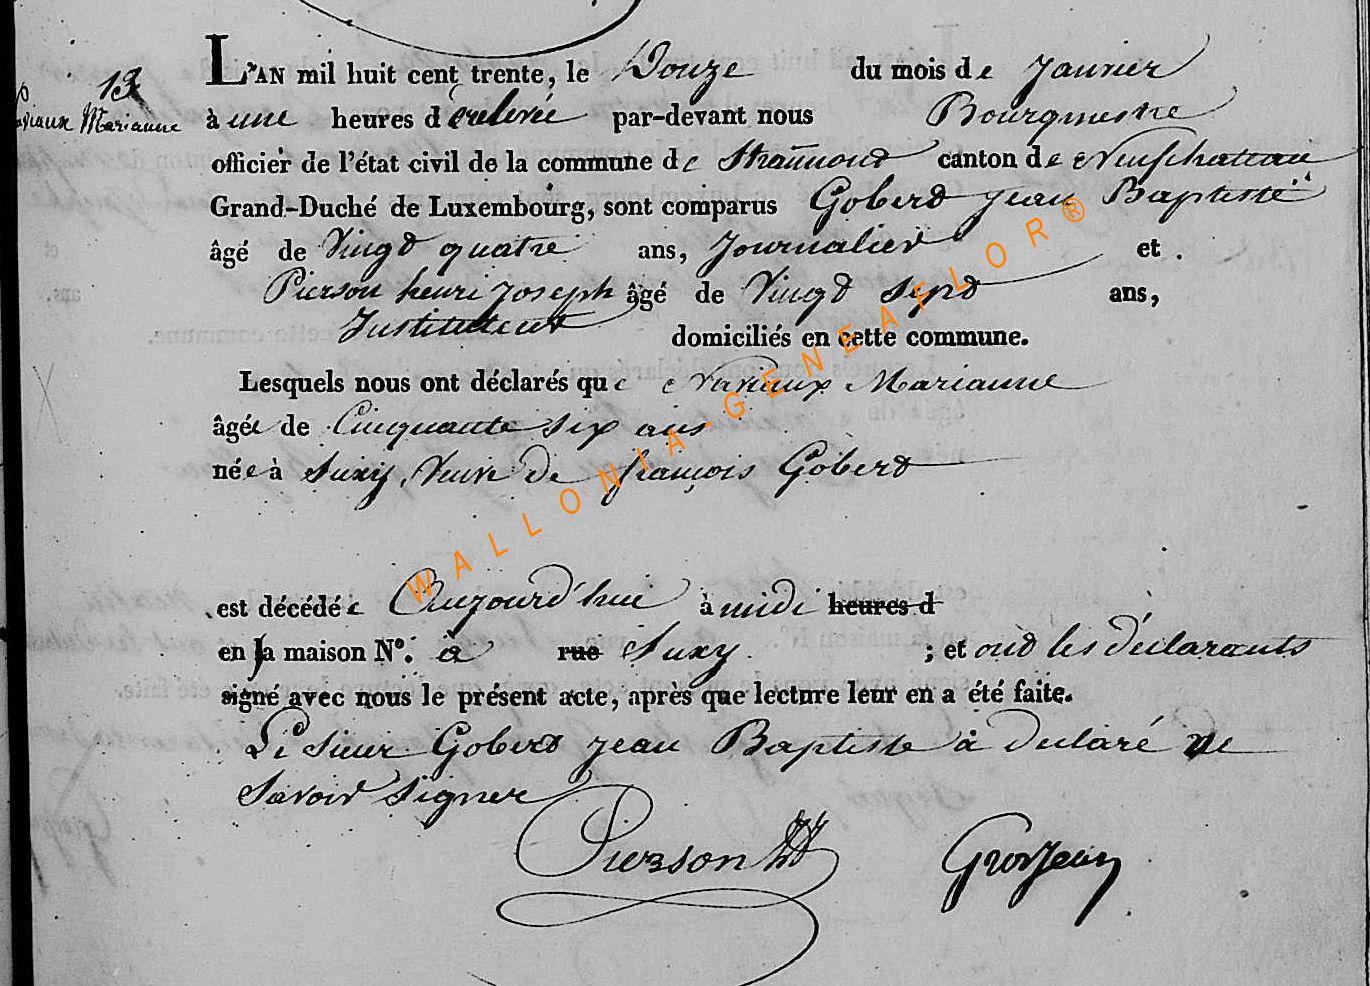 13
Mariaux Marianne
L'AN mil huit cent trente, le Douze du mois de Janvier
à une heures de relevée par-devant nous Bourgmestre
officier de l'état civil de la commune de Straimont canton de Neufchateau
Grand-Duché de Luxembourg, sont comparus Gobert Jean Baptiste
âgé de Vingt quatre ans, Journalier et
Pierson henri Joseph âgé de Vingt Sept ans,
Instituteur domiciliés en cette commune.
Lesquels nous ont déclarés que Mariaux Marianne
âgée de Cinquante Six ans
née à Suxy, Veuve de françois Gobert
est décédée Aujourd'hui à midi heures d
en la maison N°. à rue Suxy ; et ont les déclarants
signé avec nous le présent acte, après que lecture leur en a été faite.
Le Sieur Gobert Jean Baptiste à déclaré ne
Savoir Signer
Pierson HJ
Grosjean
WALLONIA-GENEAFLOR®